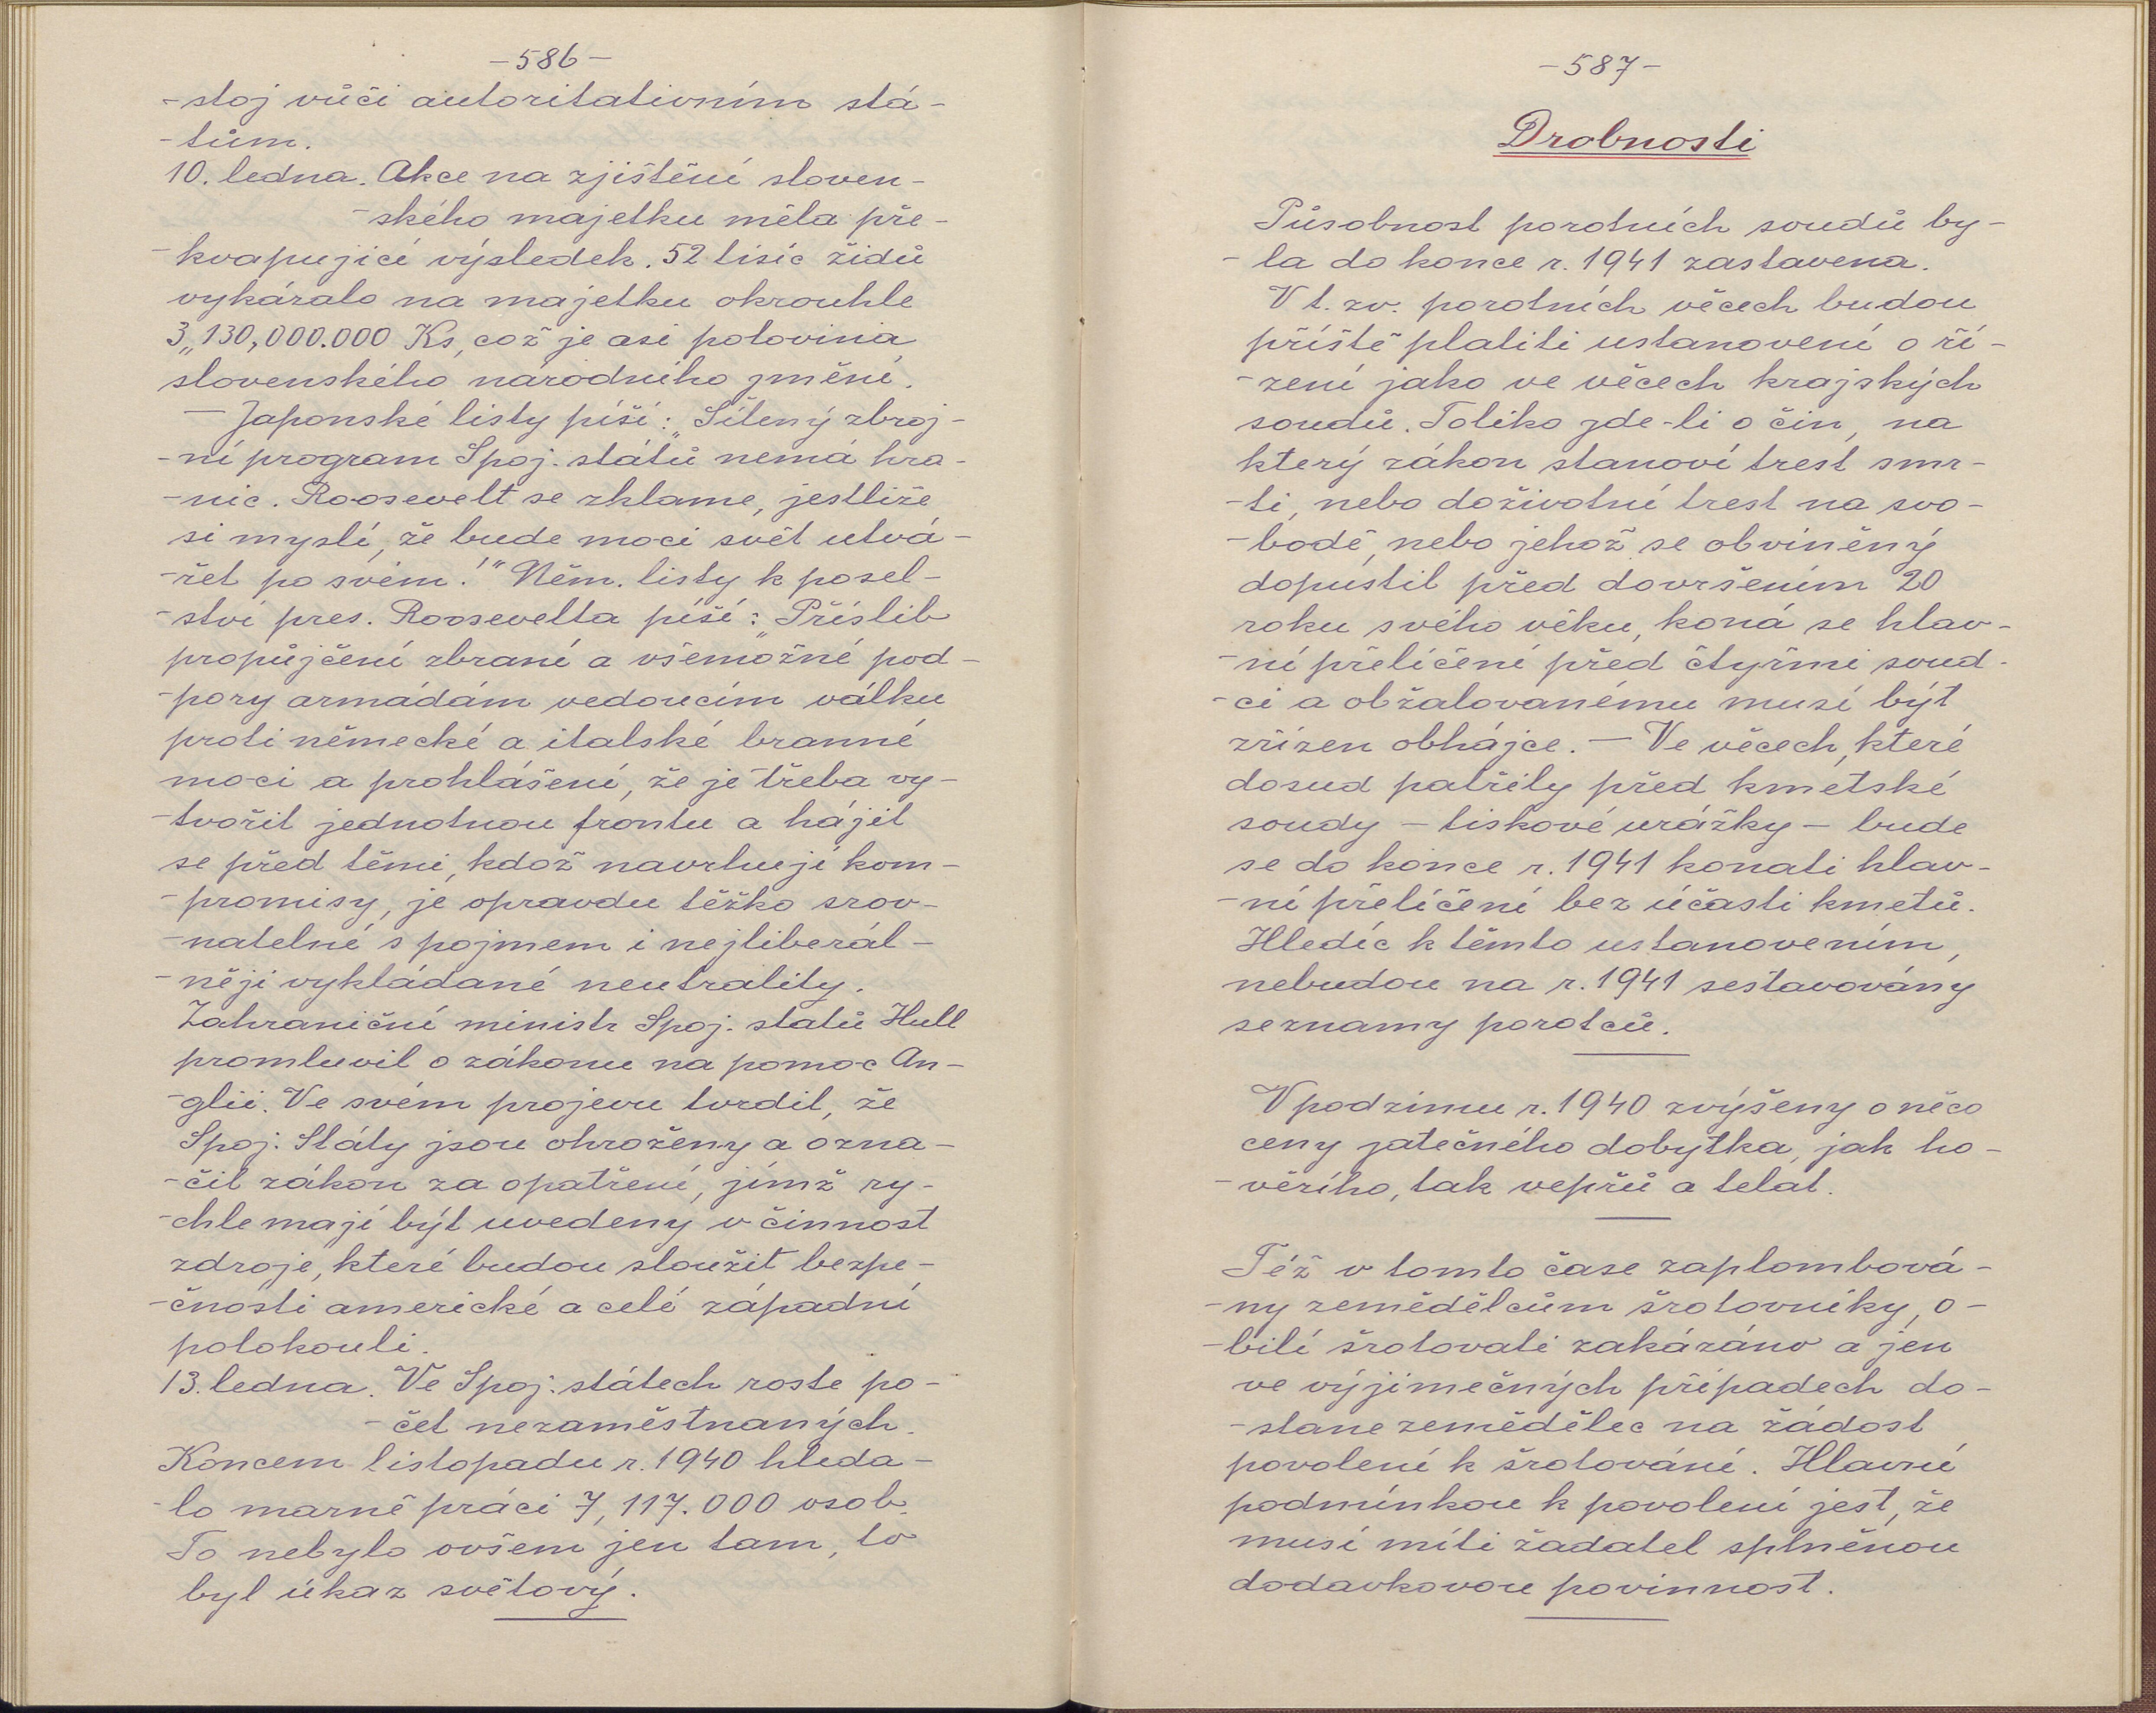 -586-
-stoj vůči autoritativním stá-
-tům.
10. ledna. Akce na zjištění sloven-
-ského majetku měla pře-
-kvapující výsledek. 52 tisíc židů
vykázalo na majetku okrouhle
3,,130,000.000 Ks, což je asi polovina
slovenského národního jmění.
— Japonské listy píší: „Šílený zbroj-
-ní program Spoj. států nemá hra-
-nic. Roosevelt se zklame, jestliže
si myslí, že bude moci svět utvá-
-řet po svém!" Něm. listy k posel-
-ství pres. Roosevelta píší: „Příslib
propůjčení zbraní a všemožné pod-
-pory armádám vedoucím válku
proti německé a italské branné
moci a prohlášení, že je třeba vy-
-tvořit jednotnou frontu a hájit
se před těmi, kdož navrhují kom-
-promisy, je opravdu těžko srov-
-natelné s pojmem i nejliberál-
-něji vykládané neutrality.
Zahraniční ministr Spoj. států Hull
promluvil o zákonu na pomoc An-
-glii. Ve svém projevu tvrdil, že
Spoj. Státy jsou ohroženy a ozna-
-čil zákon za opatření, jímž ry-
-chle mají být uvedeny v činnost
zdroje, které budou sloužit bezpe-
-čnosti americké a celé západní
polokouli.
13. ledna. Ve Spoj. státech roste po-
-čet nezaměstnaných.
Koncem listopadu r. 1940 hleda-
-lo marně práci 7,117.000 osob.
To nebylo ovšem jen tam, to
byl úkaz světový.
-587-
Drobnosti
Působnost porotních soudů by-
-la do konce r. 1941 zastavena.
V t. zv. porotních věcech budou
příště platiti ustanovení o ří-
-zení jako ve věcech krajských
soudů. Toliko jde-li o čin, na
který zákon stanoví trest smr-
-ti, nebo doživotní trest na svo-
-bodě, nebo jehož se obviněný
dopustil před dovršením 20
roku svého věku, koná se hlav-
-ní přelíčení před čtyřmi soud-
-ci a obžalovanému musí být
zřízen obhájce. — Ve věcech, které
dosud patřily před kmetské
soudy - tiskové urážky - bude
se do konce r. 1941 konati hlav-
-ní přelíčení bez účasti kmetů.
Hledíc k těmto ustanovením,
nebudou na r. 1941 sestavovány
seznamy porotců.
V podzimu r. 1940 zvýšeny o něco
ceny jatečného dobytka, jak ho-
-vězího, tak vepřů a telat.
Též v tomto čase zaplombová-
-ny zemědělcům šrotovníky, o-
-bilí šrotovati zakázáno a jen
ve výjimečných případech do-
-stane zemědělec na žádost
povolení k šrotování. Hlavní
podmínkou k povolení jest, že
musí míti žadatel splněnou
dodavkovou povinnost.